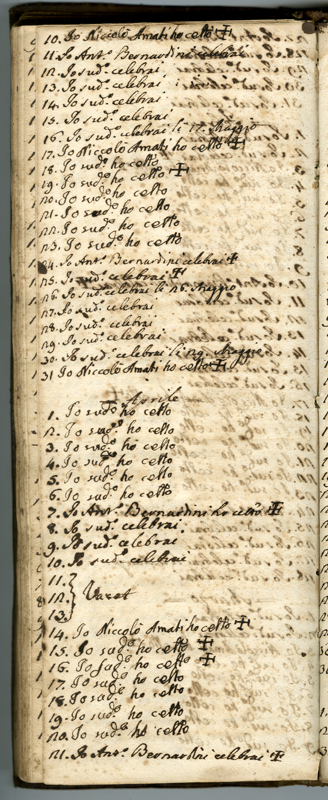 10. Io Niccolò Amati ho cetto ✠
11. Io Antº. Bernardini celebrai
12. Io sudº. celebrai
13. Io sudº. celebrai
14. Io sudº. celebrai
15. Io sudº. celebrai
16. Io sudº. celebrai li 17. Maggio
17. Io Niccolò Amati ho cetto ✠
18. Io sudº. ho cetto
19. Io sudº. ho cetto ✠
20. Io sudº. ho cetto
21. Io sudº ho cetto
22. Io sudº. ho cetto
23. Io sudº. ho cetto
24. Io Antº. Bernardini celebrai ✠
25. Io sudº. celebrai ✠
26. Io sudº. celebrai li 26. Maggio
27. Io sudº. celebrai
28. Io sudº. celebrai
29. Io sudº. celebrai
30. Io sudº. celebrai li 29. Maggio
31 Io Niccolò Amati ho cetto ✠
Aprile
1. Io sudº ho cetto
2. Io sudº. ho cetto
3. Io sudº. ho cetto
4. Io sudº ho cetto
5. Io sudº. ho cetto
6. Io sudº. ho cetto
7. Io Antº. Bernardini ho cetto ✠
8. Io sudº. celebrai
9. Io sudº. celebrai
10. Io sudº. celebrai
11.
12. Vacot
13.
14. Io Niccolò Amati ho cetto ✠
15. Io sudº. ho cetto ✠
16. Io sudº. ho cetto ✠
17. Io sudº ho cetto
18. Io sudº. ho cetto
19. Io sudº. ho cetto
20. Io sudº. ho cetto
21. Io Antº. Bernardini celebrai ✠